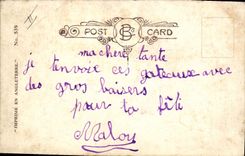 No. 539
"IMPRIMÉ EN ANGLETERRE."
POST CARD
ma chere tante
je t'envoie ces gateaux avec
des gros baisers
pour ta fête
Malou